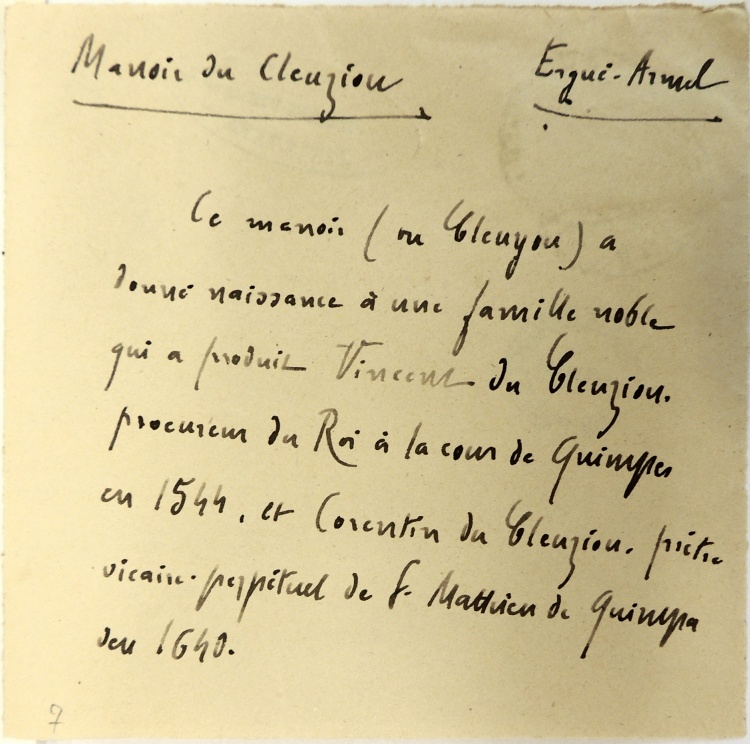 Manoir du Cleuziou Ergué-Armel
Ce manoir (ou Cleuyou) a
donné naissance à une famille noble
qui a produit Vincent du Cleuziou.
procureur du Roi à la cour de Quimper
en 1544, et Corentin du Cleuziou. prêtre
vicaire-perpétuel de St Mathieu de Quimper
en 1640.
7